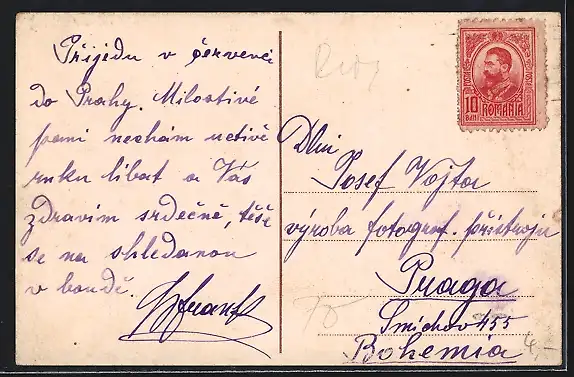 Přijedu v červenci
do Prahy. Milostivé
paní nechám uctivě
ruku líbat a Vás
zdravím srdečně, těše
se na shledanou
v boudě.
10 BANI ROMANIA
Dlni
Josef Vojta
výroba fotograf. přístrojů
Praga
Smichov 455
Bohemia
4,-